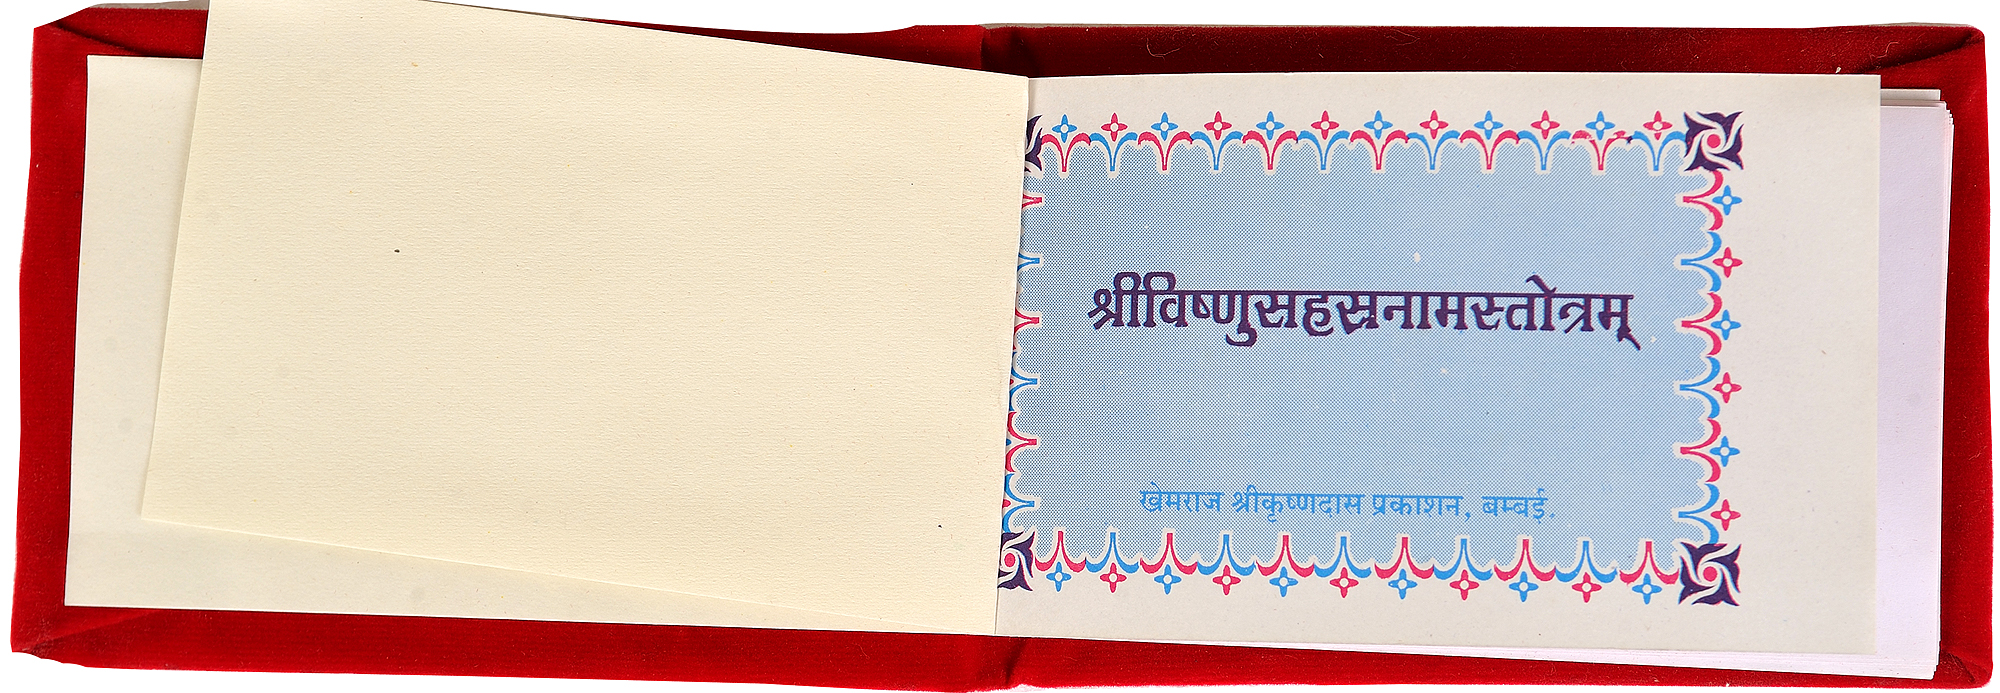 श्रीविष्णुसहस्रनामस्तोत्रम्
खेमराज श्रीकृष्णदास प्रकाशन, बम्बई.